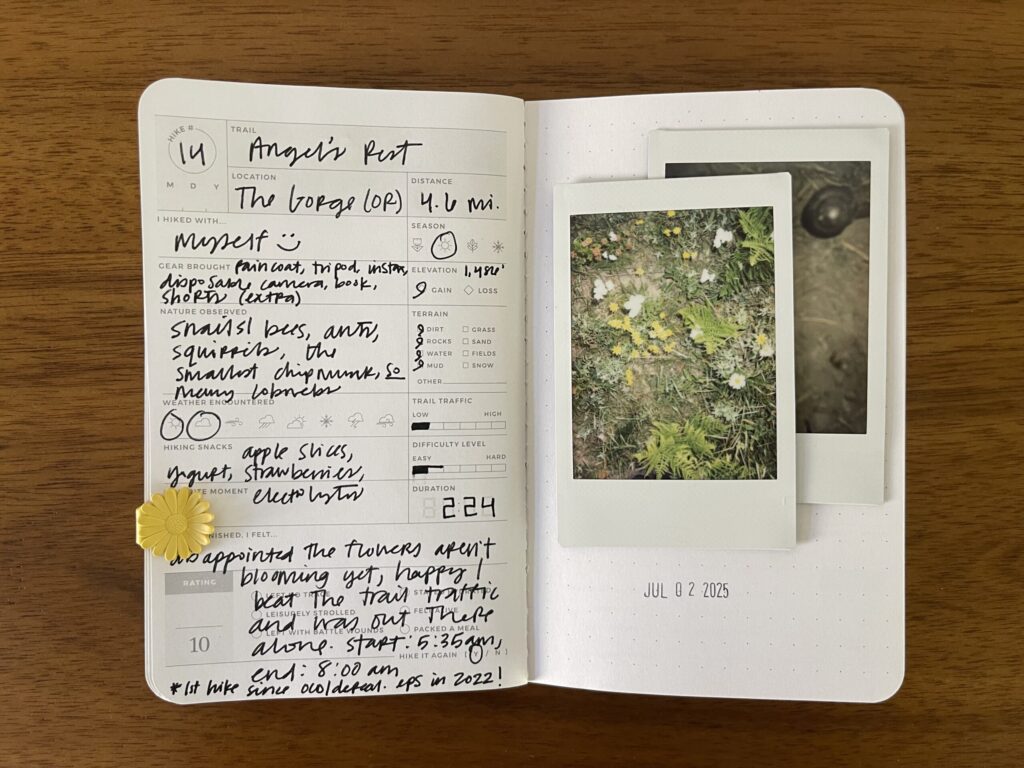 HIKE #
14
M D Y
TRAIL
Angel's Rest
LOCATION
The Gorge (OR)
DISTANCE
4.6 mi.
I HIKED WITH...
Myself :)
SEASON
GEAR BROUGHT raincoat, tripod, instax,
disposable camera, book,
shorts (extra)
ELEVATION 1,486'
GAIN LOSS
NATURE OBSERVED
snails! bees, ants,
squirrels, the
smallest chipmunk, so
many
TERRAIN
DIRT GRASS
ROCKS SAND
WATER FIELDS
MUD SNOW
OTHER
WEATHER ENCOUNTERED
TRAIL TRAFFIC
LOW HIGH
HIKING SNACKS apple slices,
yogurt, strawberries,
electrolytes
DIFFICULTY LEVEL
EASY HARD
MOMENT
DURATION
2:24
I FELT...
disappointed the flowers aren't
blooming yet, happy I
beat the trail traffic
and was out there
alone. start: 5:35am,
end: 8:00 am
RATING
10
LEISURELY STROLLED
LEFT WITH BATTLE WOUNDS
PACKED A MEAL
HIKE IT AGAIN ( Y / N )
*1st hike since in 2022!
JUL 02 2025